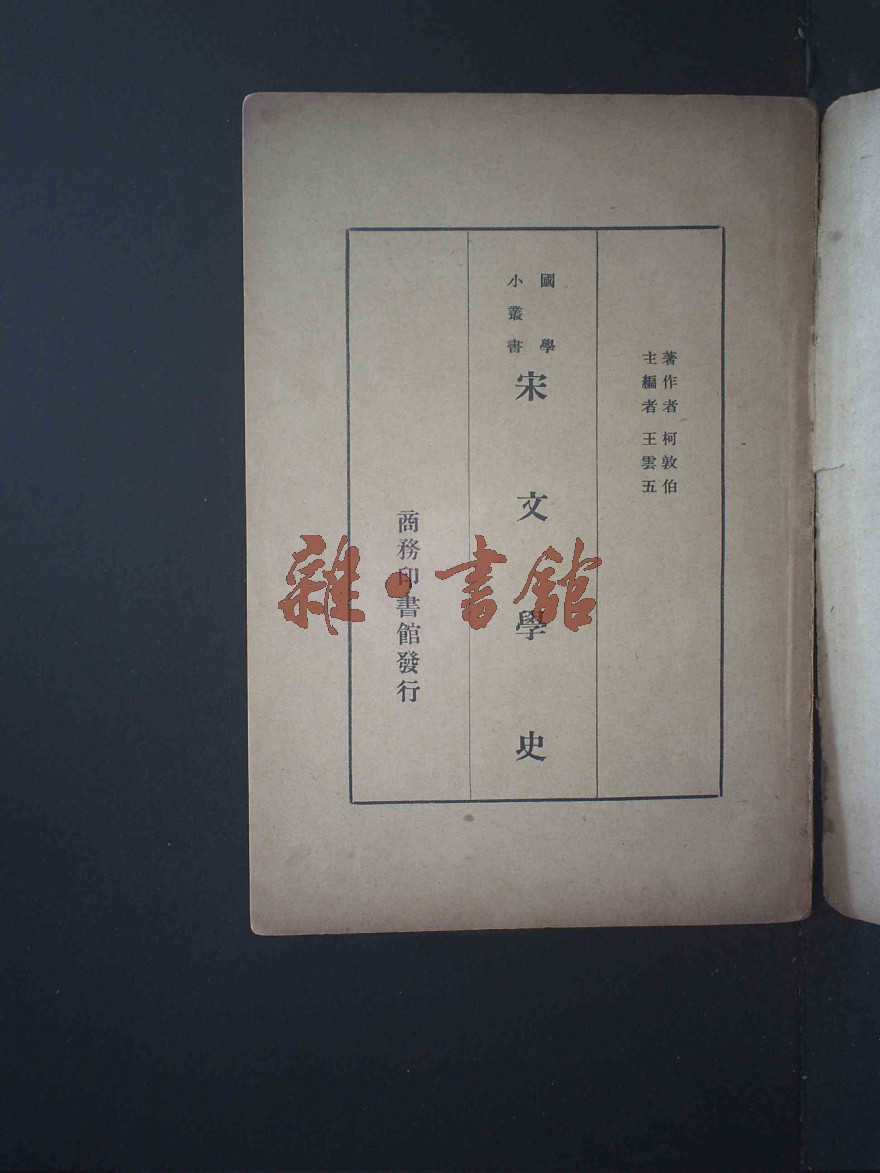 著作者 柯敦伯
主編者 王雲五
國學
小叢書
宋文學史
商務印書館發行
雜·書館